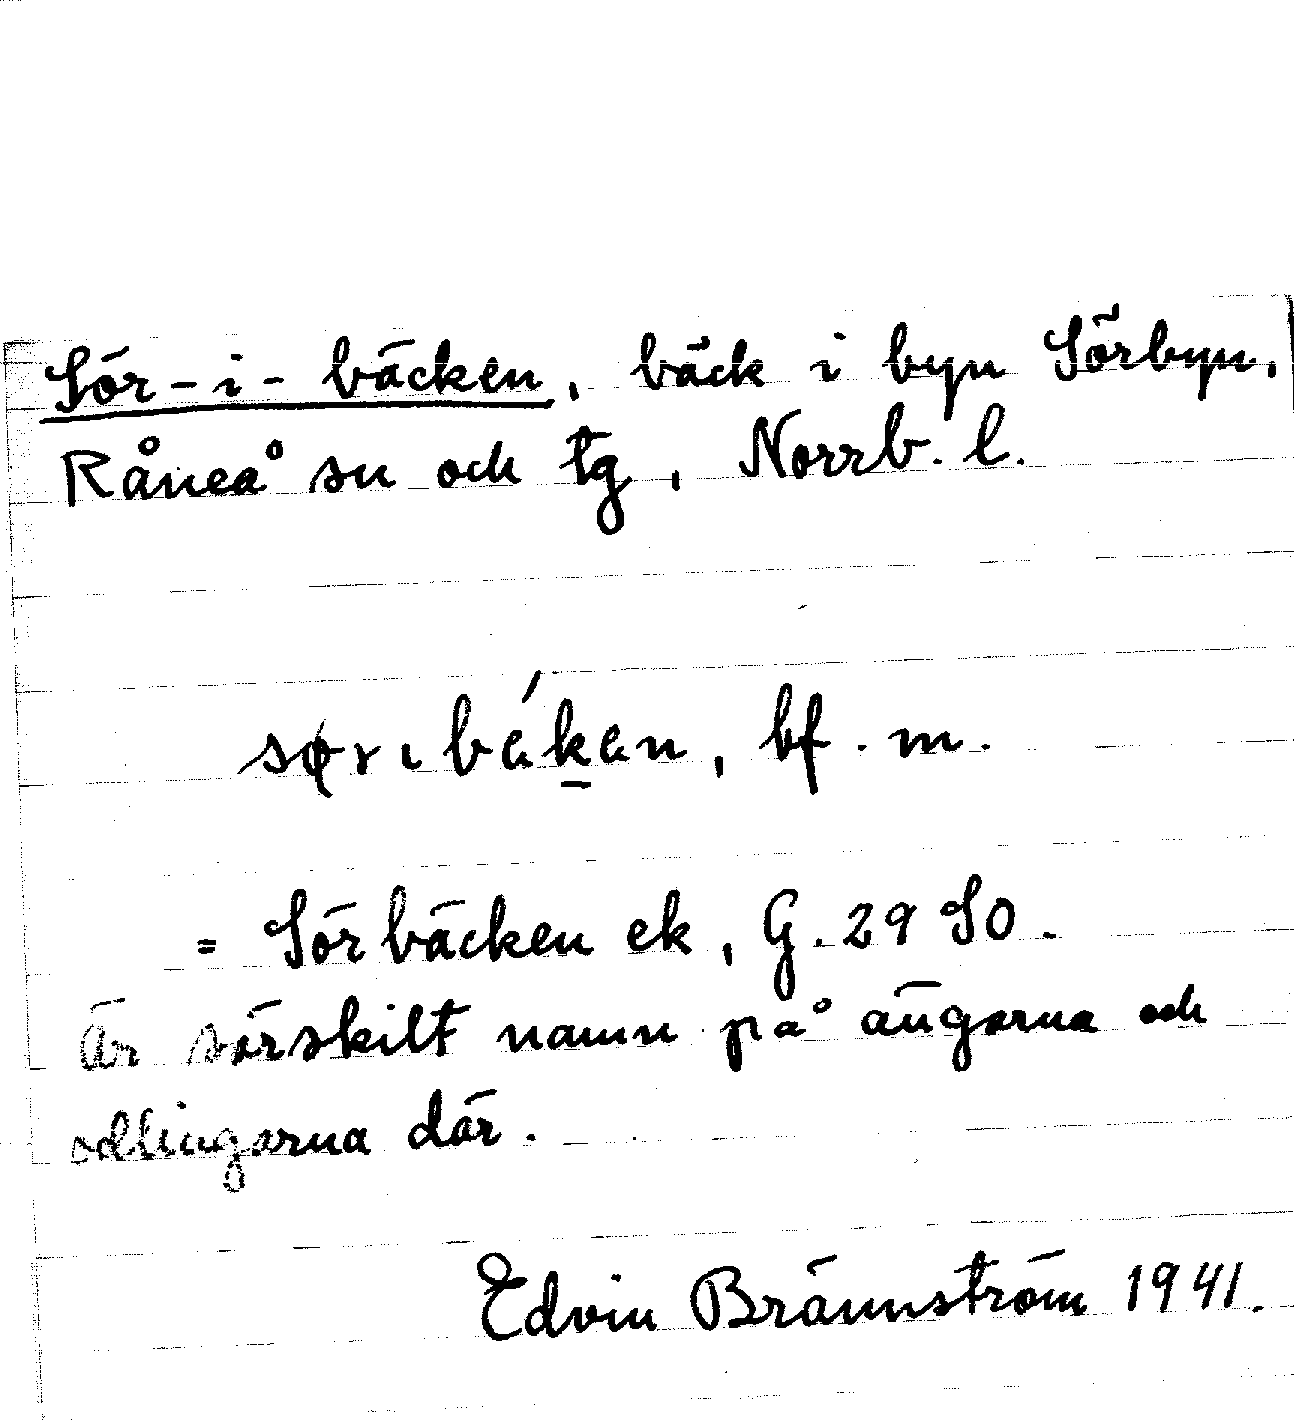 Sör-i-bäcken, bäck i byn Sörbyn,
Råneå sn och tg, Norrb. l.
bf. m.
= Sörbäcken ek, G. 29 SO.
Är särskilt namn på ängarna och
odlingarna där.
Edvin Brännström 1941.